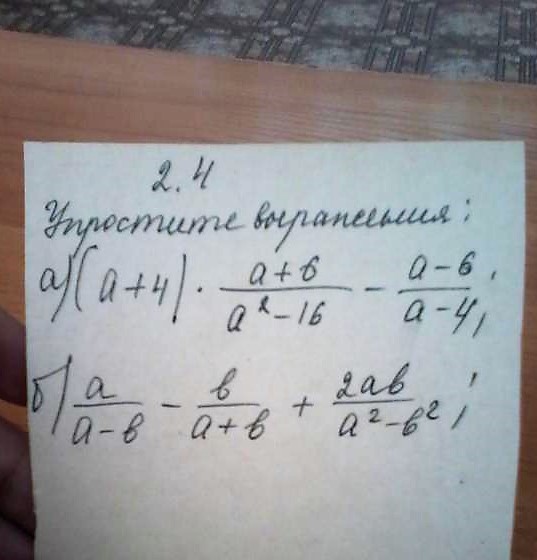 2.4
Упростите выражения:
а) (a+4) · \frac{a+b}{a^2-16} - \frac{a-b}{a-4};
б) \frac{a}{a-b} - \frac{b}{a+b} + \frac{2ab}{a^2-b^2};